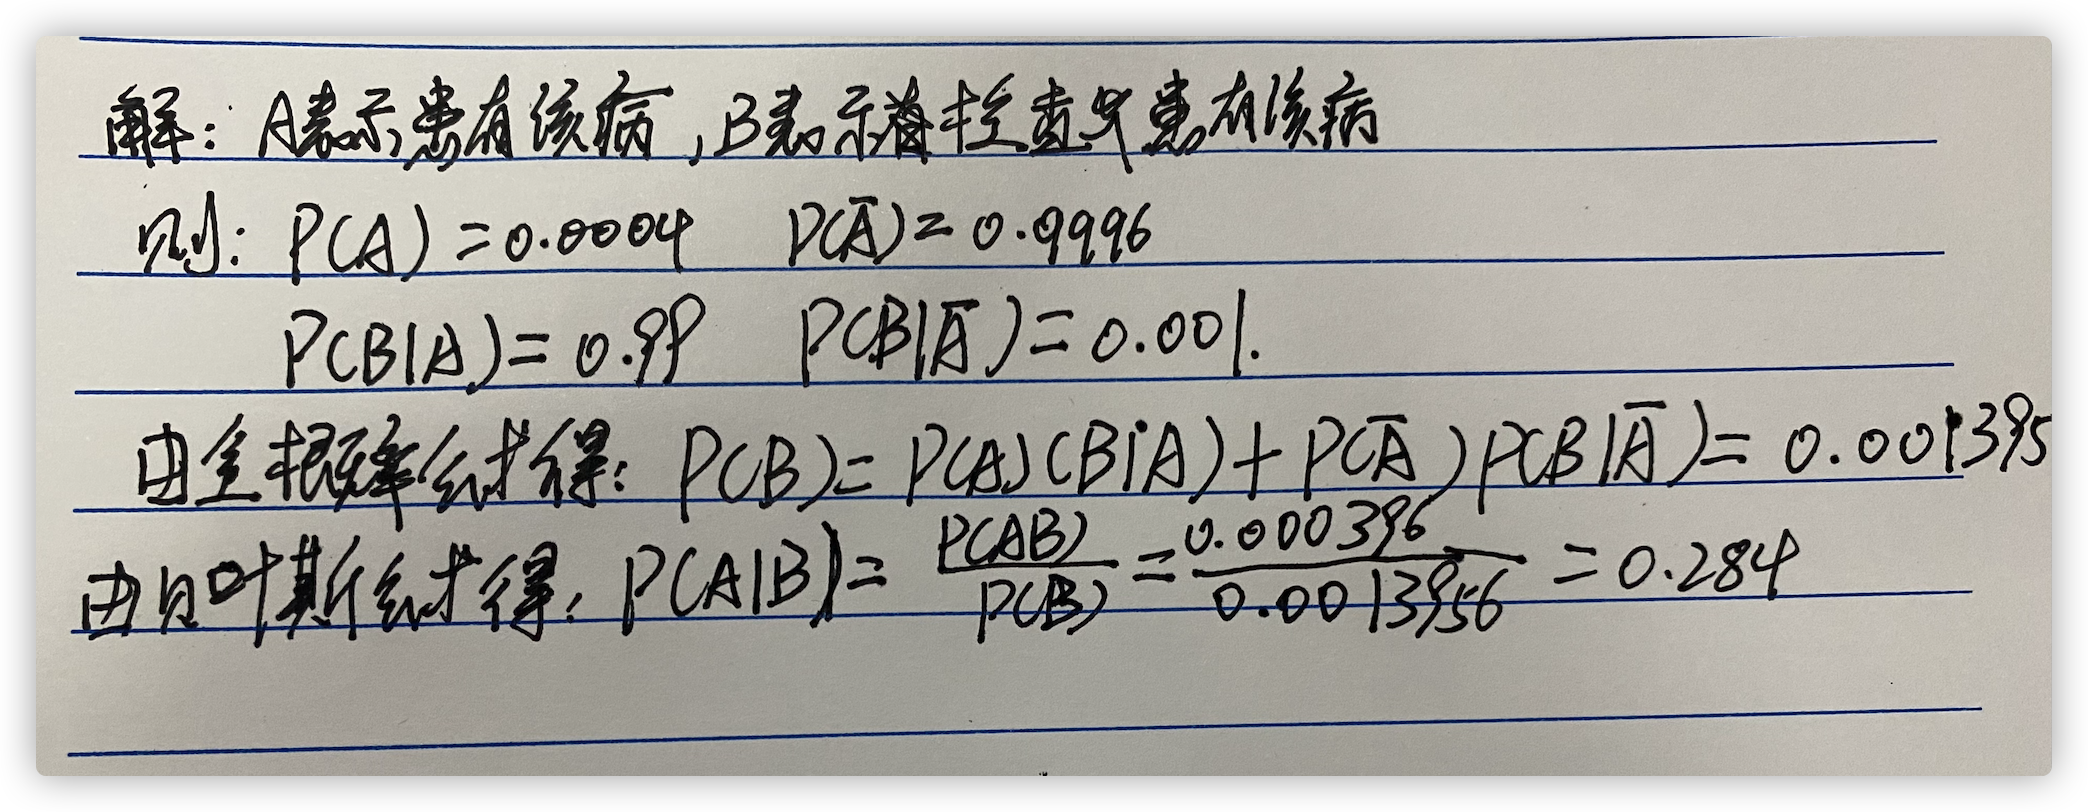 解：A表示患有该病，B表示着检查出患有该病
则：P(A)=0.0004 P(Ā)=0.9996
P(B|A)=0.99 P(B|Ā)=0.001.
由全概率公式得：P(B)=P(A)(B|A)+P(Ā)P(B|Ā)=0.001395
由贝叶斯公式得：P(A|B)=P(AB)/P(B)=0.000396/0.0013956=0.284